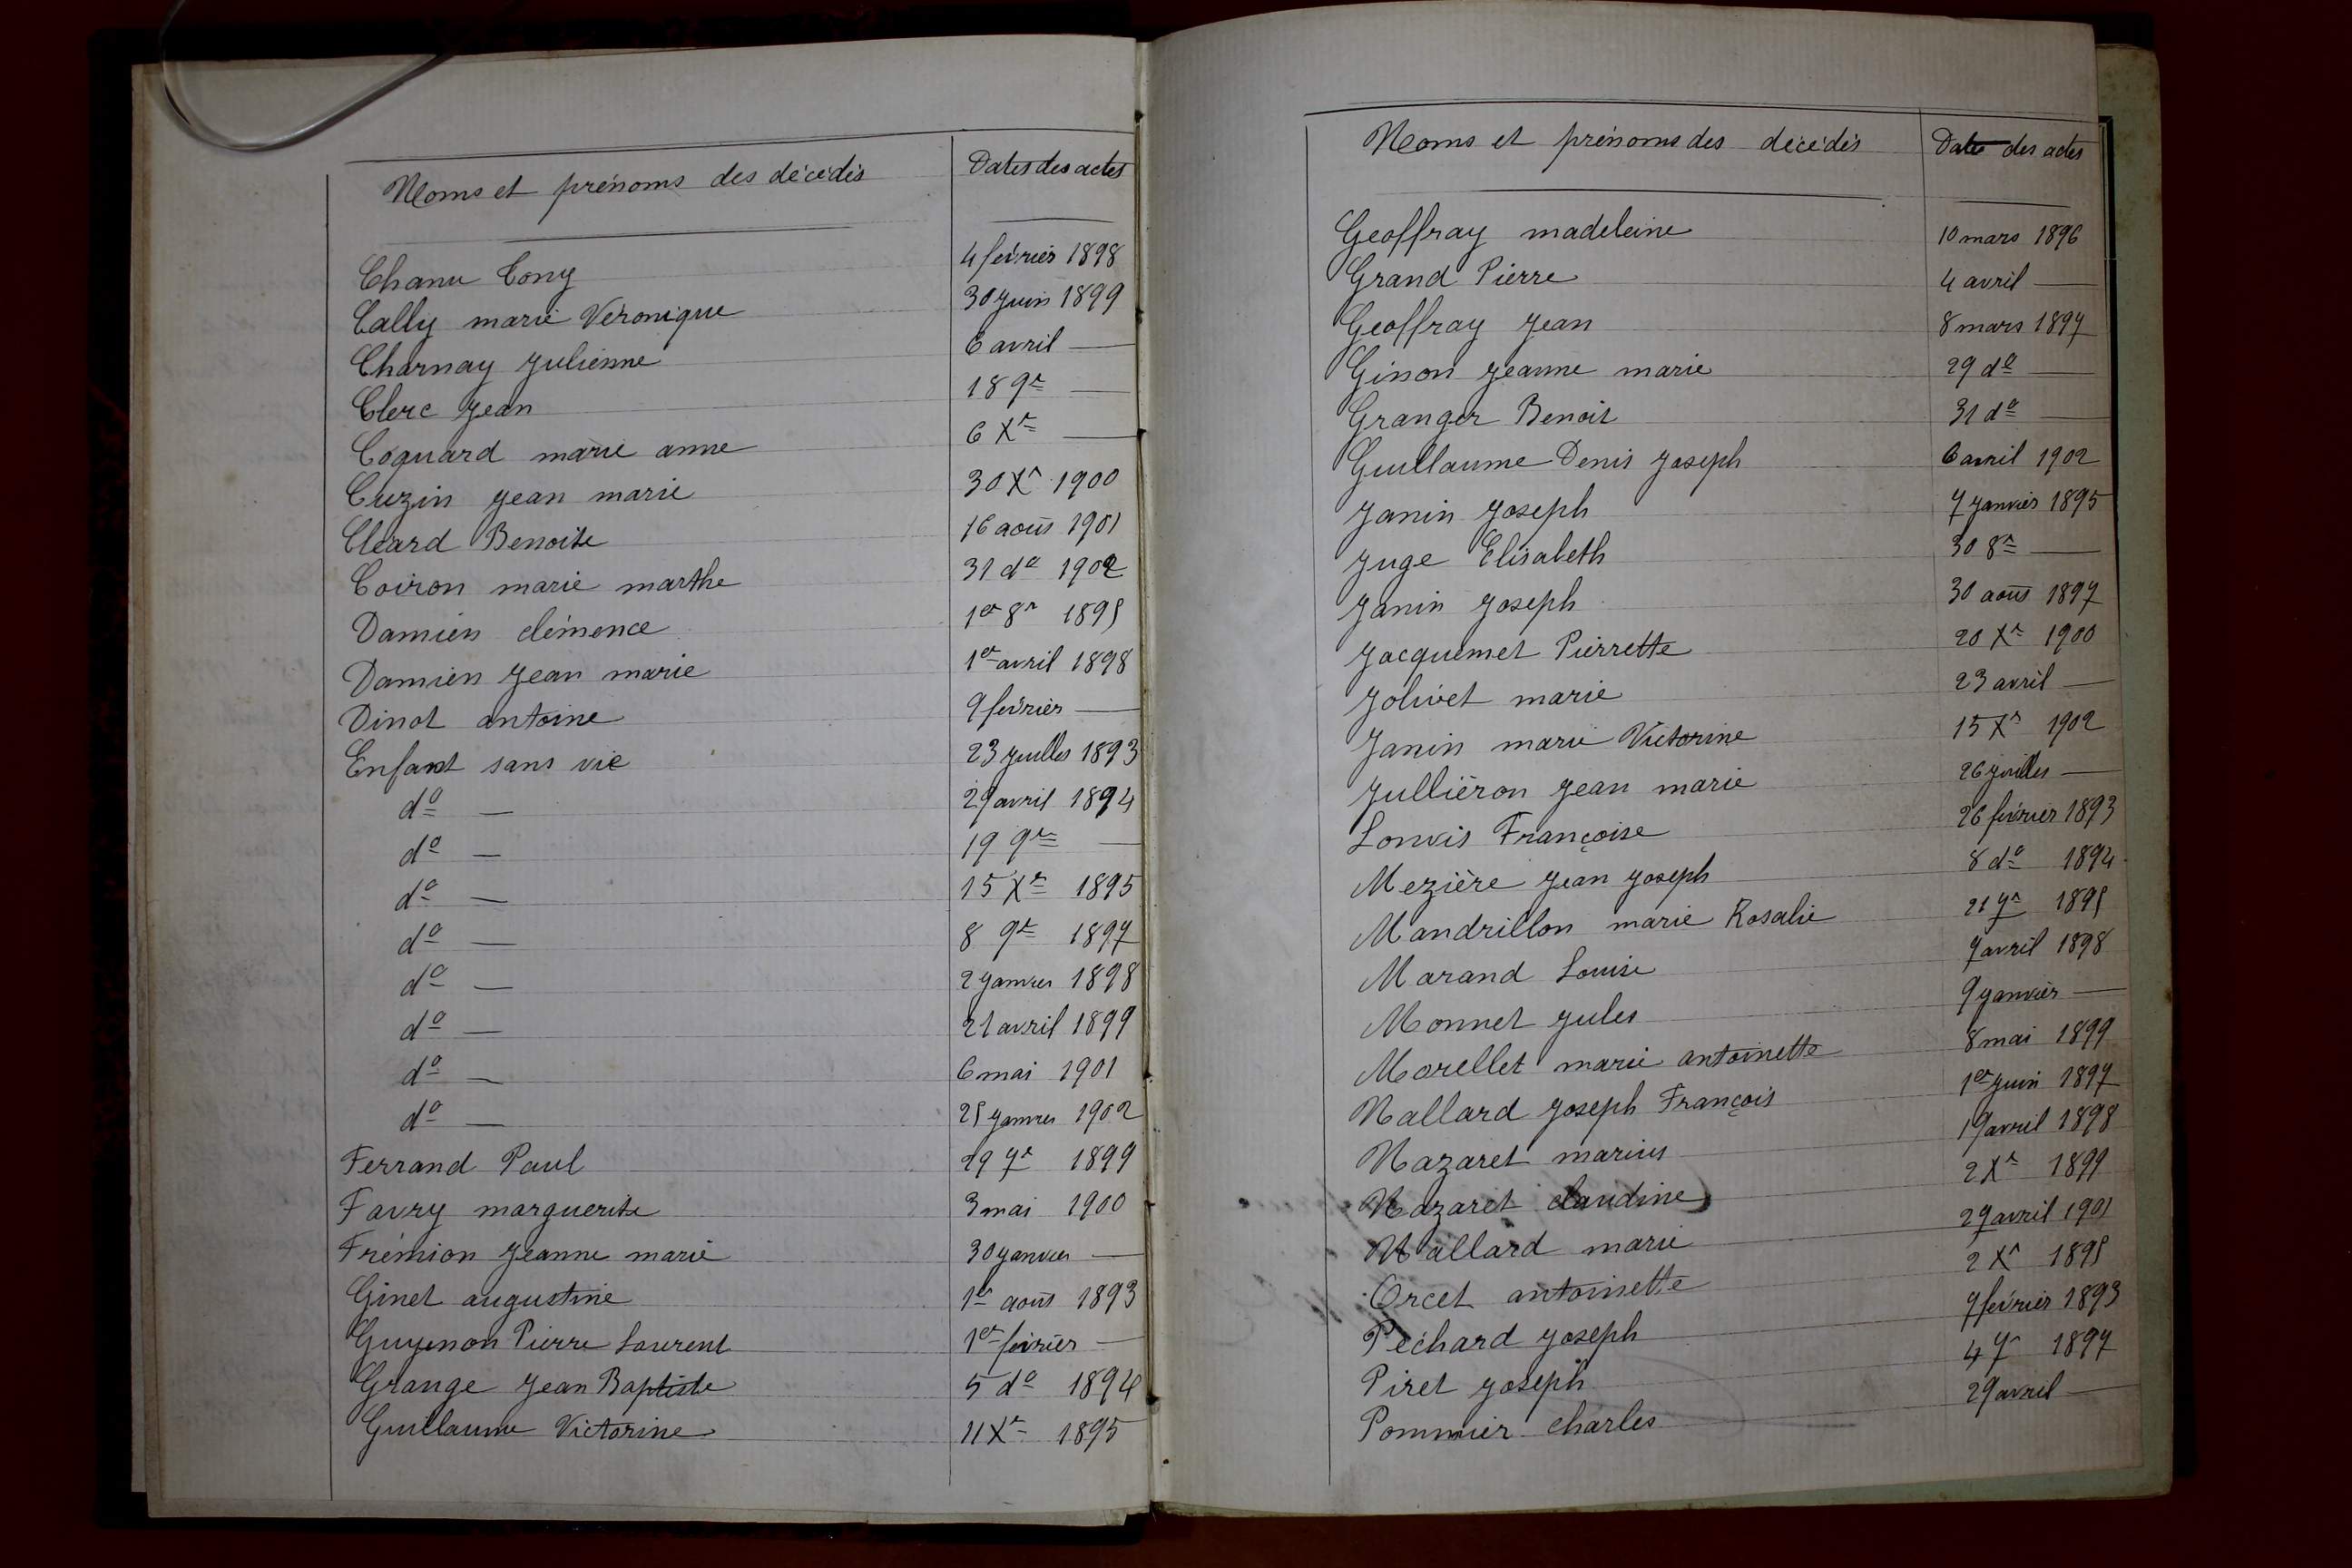 Noms et prénoms des décédés Dates des actes
Chanu Tony 4 février 1898
Cally marie Véronique 30 juin 1899
Charnay Julienne 6 avril —
Clerc Jean 18 9re —
Coquard marie anne 6 Xre —
Cuzin Jean marie 30 Xr 1900
Cléard Benoite 16 août 1901
Coiron marie marthe 31 do 1902
Damien clémence 1er 8r 1895
Damien Jean marie 1er avril 1898
Dinot antoine 9 février —
Enfant sans vie 23 juillet 1893
do — 29 avril 1894
do — 19 9re —
do — 15 Xre 1895
do — 8 9re 1897
do — 2 janvier 1898
do — 21 avril 1899
do — 6 mai 1901
do — 25 janvier 1902
Ferrand Paul 29 7r 1899
Favry marguerite 3 mai 1900
Frémion Jeanne marie 30 janvier —
Ginet augustine 1er août 1893
Guyenon Pierre Laurent 1er février —
Grange Jean Baptiste 5 do 1894
Guillaume Victorine 11 Xre 1895
Noms et prénoms des décédés Date des actes
Geoffray madeleine 10 mars 1896
Grand Pierre 4 avril —
Geoffray Jean 8 mars 1897
Ginon Jeanne marie 29 do —
Granger Benoit 31 do —
Guillaume Denis Joseph 6 avril 1902
Janin Joseph 7 janvier 1895
Juge Elisabeth 30 8re —
Janin Joseph 30 août 1897
Jacquemet Pierrette 20 Xre 1900
Jolivet marie 23 avril —
Janin marie Victorine 15 Xr 1902
Julliéron Jean marie 26 juillet —
Lonvis Françoise 26 février 1893
Mezière Jean Joseph 8 do 1894
Mandrillon marie Rosalie 21 7r 1895
Marand Louise 7 avril 1898
Monnet Jules 9 janvier —
Morellet marie antoinette 8 mai 1899
Nallard Joseph François 1er juin 1897
Nazaret marius 19 avril 1898
Nazaret claudine 2 Xre 1899
Nallard marie 27 avril 1901
Orcet antoinette 2 Xr 1895
Péchard Joseph 7 février 1893
Piret Joseph 4 7r 1897
Pommier charles 29 avril —